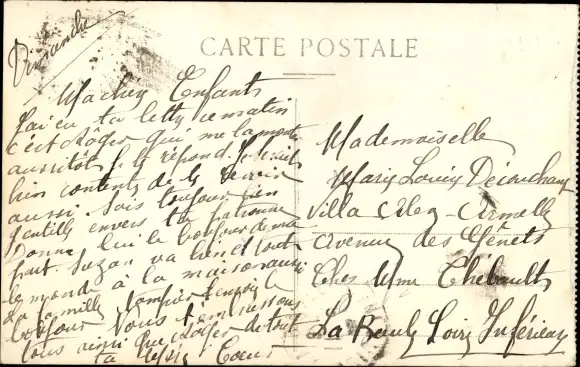 Dimanche
CARTE POSTALE
Ma chey Enfants
Jai eu ta lettre ce matin
c'est Roger qui me la monte
aussitot je te répond je suis
bien contente de te revoir
aussi sois toujour bien
gentille envers ta patronne
Donne lui le bonjour de ma
part Suzan va bien et tout
le monde à la maison aussi
La famille
bonjour nous t'embrassons
tous ainsi que Roger de tout
Coeur
Mademoiselle
Mary Louiy Decouchay
Villa Alex-Armelly
Avenuy des Genets
Ches Mme Thébaults
La Bauly Loiry Inférieury